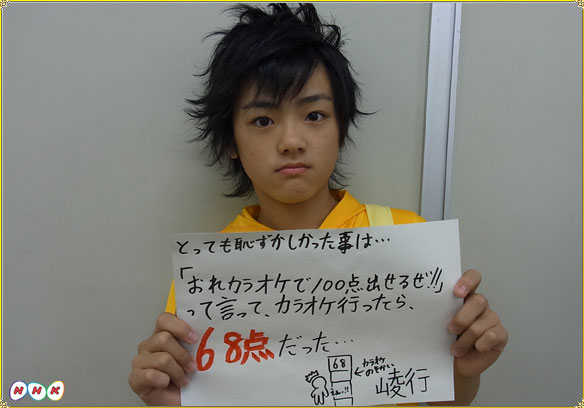 とっても恥ずかしかった事は…
「おれカラオケで100点出せるぜ!!」
って言って、カラオケ行ったら、
68点だった…
68
カラオケ
のきかい
崚行
NHK